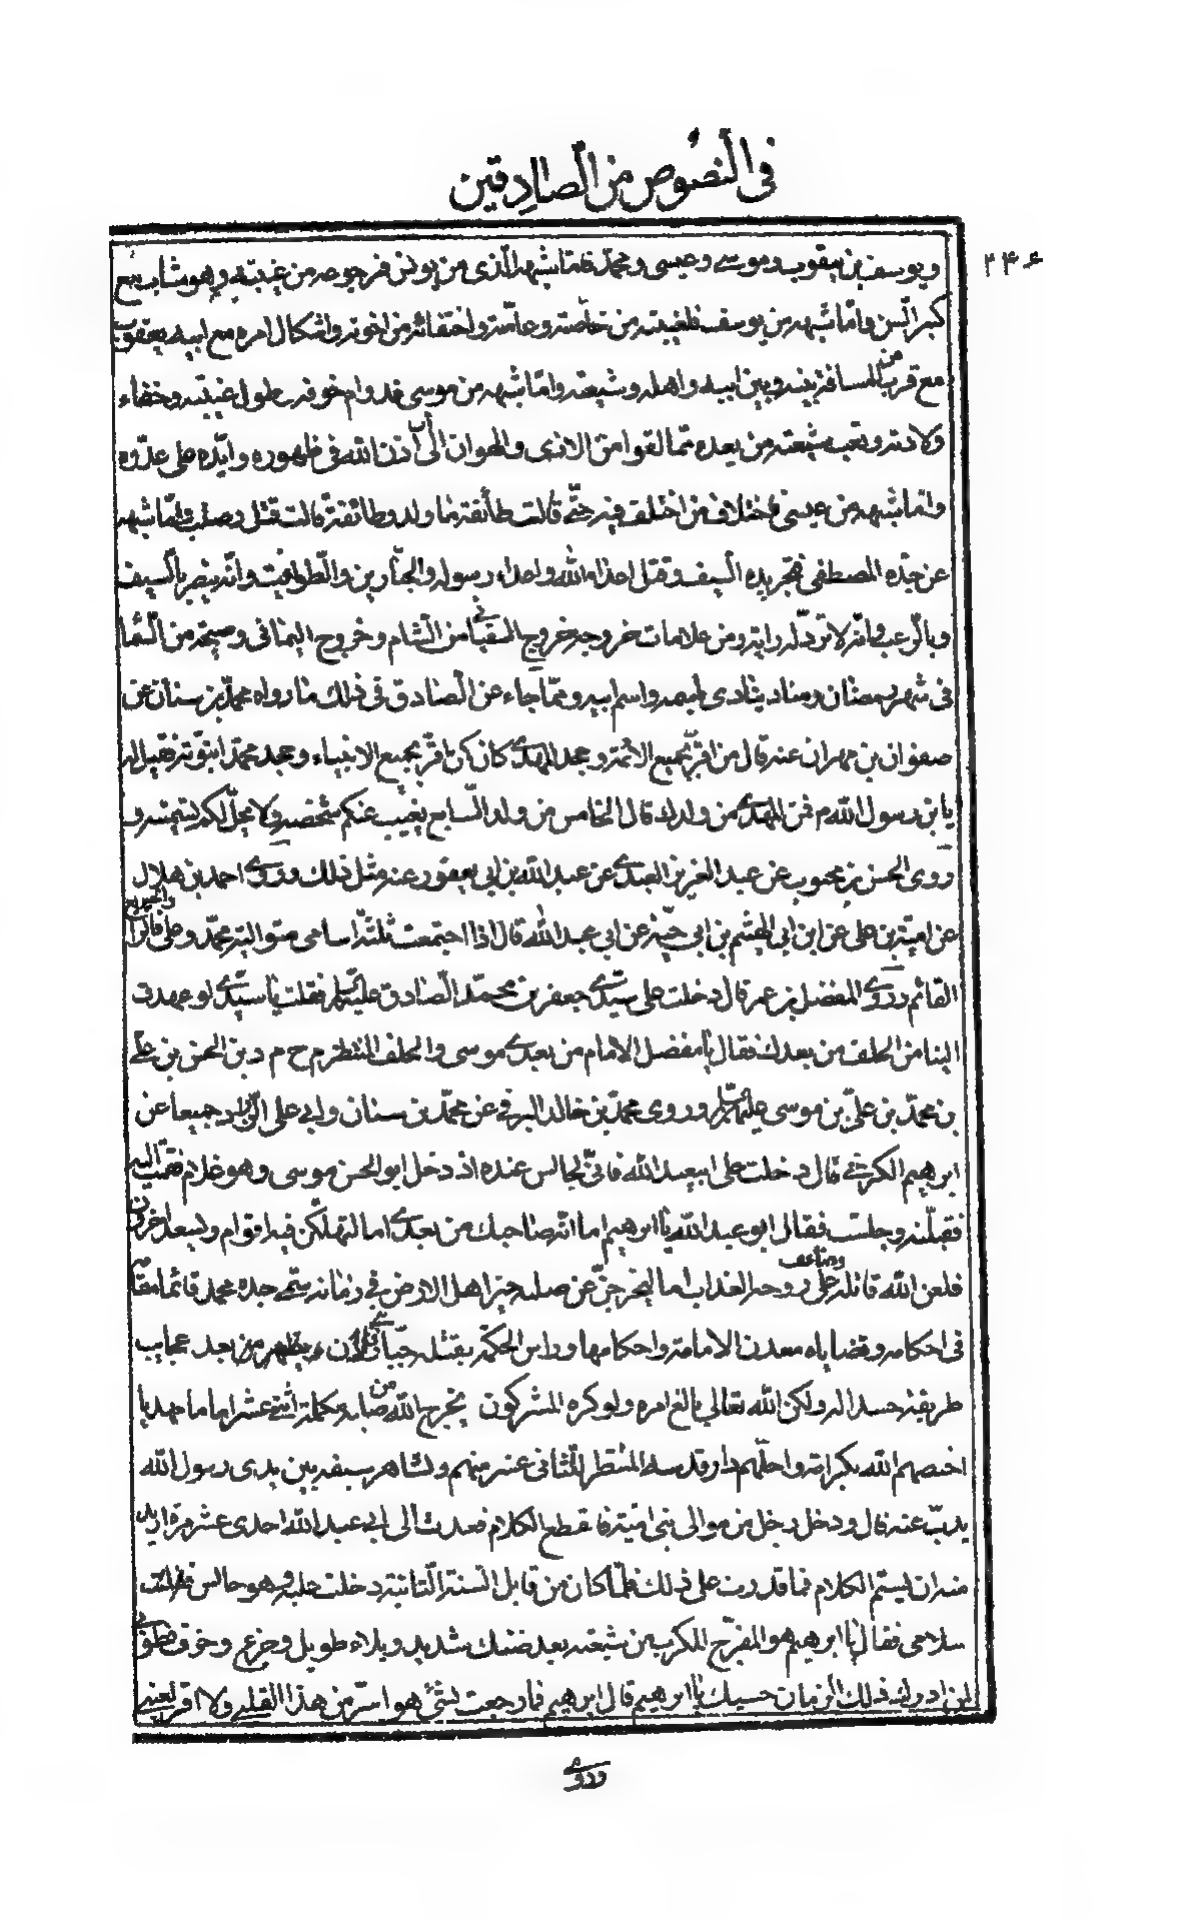 في النصوص من الصادقين
٢٤۶
ويوسف بن يعقوب وموسى وعيسى ومحمد فاما شبهه الذي من يونس فرجوعه من غيبته وهو شاب مع
كبر السن واما شبهه من يوسف فغيبته من خاصته وعامته واختفائه من اخوته واشكال امره مع ابيه يعقوب
مع قرب المسافة بينه وبين ابيه واهله وشيعته واما شبهه من موسى فدوام خوفه وطول غيبته وخفاء
ولادته وتعب شيعته من بعده مما لقوا من الاذى والهوان الى ان اذن الله في ظهوره وايده على عدوه
واما شبهه من عيسى فاختلاف من اختلف فيه حتى قالت طائفة ما ولد وطائفة قالت قتل وصلب واما شبهه
من جده المصطفى فتجريده السيف وقتل اعداء الله واعداء رسوله والجبارين والطواغيت وانه ينصر بالسيف
وبالرعب وانه لا ترد له راية ومن علامات خروجه خروج السفياني من الشام وخروج اليماني وصيحة من السماء
في شهر رمضان ومناد ينادي باسمه واسم ابيه ومما جاء عن الصادق في ذلك ما رواه محمد بن سنان عن
صفوان بن مهران عنه قال من اقر بجميع الائمة وجحد المهدي كان كمن اقر بجميع الانبياء وجحد محمدا نبوته فقيل له
يا بن رسول الله م فمن المهدي من ولدك قال الخامس من ولد السابع يغيب عنكم شخصه ولا يحل لكم تسميته و
روى الحسن بن محبوب عن عبد العزيز العبدي عن عبد الله بن ابي يعفور عنه مثل ذلك وروى احمد بن هلال
عن امية بن علي عن ابن ابي الهيثم بن ابي حية عن ابي عبد الله قال اذا اجتمعت ثلثة اسامي متوالية محمد وعلي والحسن فالرابع
القائم وروى المفضل بن عمر قال دخلت على سيدي جعفر بن محمد الصادق عليه السلام فقلت يا سيدي لو عهدت
الينا من الخلف من بعدك فقال يا مفضل الامام من بعدي موسى والخلف المنتظر م ح م د بن الحسن بن علي
بن محمد بن علي بن موسى عليهم السلام وروى محمد بن خالد البرقي عن محمد بن سنان وابي علي الزراد جميعا عن
ابرهيم الكرخي قال دخلت على ابيعبد الله فاني لجالس عنده اذ دخل ابو الحسن موسى وهو غلام فقمت اليه
فقبلته وجلست فقال ابو عبد الله يا ابرهيم اما انه صاحبك من بعدي اما ليهلكن فيه اقوام وليسعد اخرون
فلعن الله قاتله وضاعف على روحه العذاب اما ليخرجن عن صلبه خير اهل الارض في زمانه سمي جده محمد قائما مقامه
في احكامه وقضاياه معدن الامامة واحكامها وراس الحكمة يقتله جبار بني فلان ء يظهر من بعد عجايب
طريفة حسدا له ولكن الله تعالى بالغ امره ولو كره المشركون يخرج الله من صلبه تكملة اثني عشر اماما مهديا
اختصهم الله بكرامته واحلهم دار قدسه المنتظر للثاني عشر منهم والشاهر سيفه بين يدي رسول الله
يذب عنه قال ودخل رجل من موالى بني امية فانقطع الكلام فعدت الى ابي عبد الله احدى عشر مرة اريد
منه ان يستتم الكلام فما قدرت على ذلك فلما كان من قابل السنة الثانية دخلت عليه وهو جالس فقلت
سلامي فقال يا ابرهيم هو المفرج للكرب من شيعته بعد ضنك شديد وبلاء طويل وجزع وخوف فطوبى
لمن ادرك ذلك الزمان حسبك يا ابرهيم قال ابرهيم فما رجعت بشئ هو اسر من هذا القلبي ولا اقر لعيني
وروى